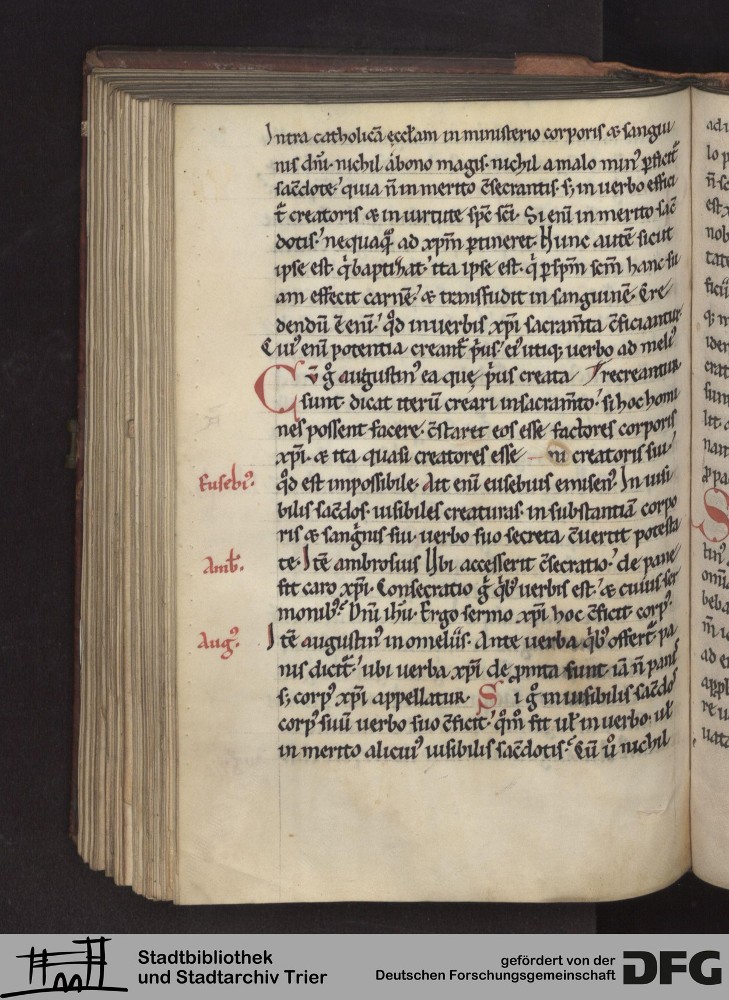 Intra catholicā ęccl̄am in ministerio corporis & sangui
nis dn̄i. nichil abono magis. nichil a malo min᾽ ꝑficit᷑
sac̄dote. quia n̄ in merito c̄secrantis. s; in uerbo effici
t᷑ creatoris & in uirtute sp̄c sc̄i. Si eni̅ in merito sac̄
dotis. nequaq̄ᷓ ad xp̄m ꝑtineret. Hunc autē sicut
ipse est q̇ baptizat. ita ipse est. q̇ ꝑ sp̄m sc̄m hanc su
am effecit carnē. & transfudit in sanguinē. Cre
dendū ē eni̅. qd̄ in uerbis xp̄i sacram̄ta c̄ficiantur.
Cui᾽ eni̅ potentia creant᷑ p̓us. ei᾽ utiq; uerbo ad meli᾽
recreantur
Cū g̊ augustin᾽ ea quę p̓us creata
sunt. dicat iterū creari in sacram̄to. si hoc homi
nes possent facere. c̄staret eos esse factores corporis
xp̄i. & ita quasi creatores esse ni creatoris sui.
Eusebi᾽.
qd̄ est impossibile. Ait eni̅ eusebius emisen᾽. In uisi
bilis sac̄dos. uisibiles creaturas. in substantiā corpo
ris & sang̓nis sui. uerbo suo secreta c̄uertit potesta
Amb̄.
te. Itē ambrosius Ubi accesserit c̄secratio. de pane
fit caro xp̄i. Consecratio g̊ q̓b᾽ uerbis est. & cuius ser
monib᾽. Dn̄i ih̄u. Ergo sermo xp̄i hoc c̄ficit corp᾽.
Aug᾽.
Itē augustin᾽ in omeliis. Ante uerba q̓b᾽ offert᷑ pa
nis dicit᷑. ubi uerba xp̄i deꝓmta sunt iā n̄ panis
s; corp᾽ xp̄i appellatur. Si g̊ inuisibilis sac̄dos
corp᾽ suū uerbo suo c̄ficit. qm̊ fit ul̄ in uerbo. ul̄
in merito alicui᾽ uisibilis sac̄dotis. Cū u̇ nichil
Stadtbibliothek
und Stadtarchiv Trier
gefördert von der
Deutschen Forschungsgemeinschaft
DFG